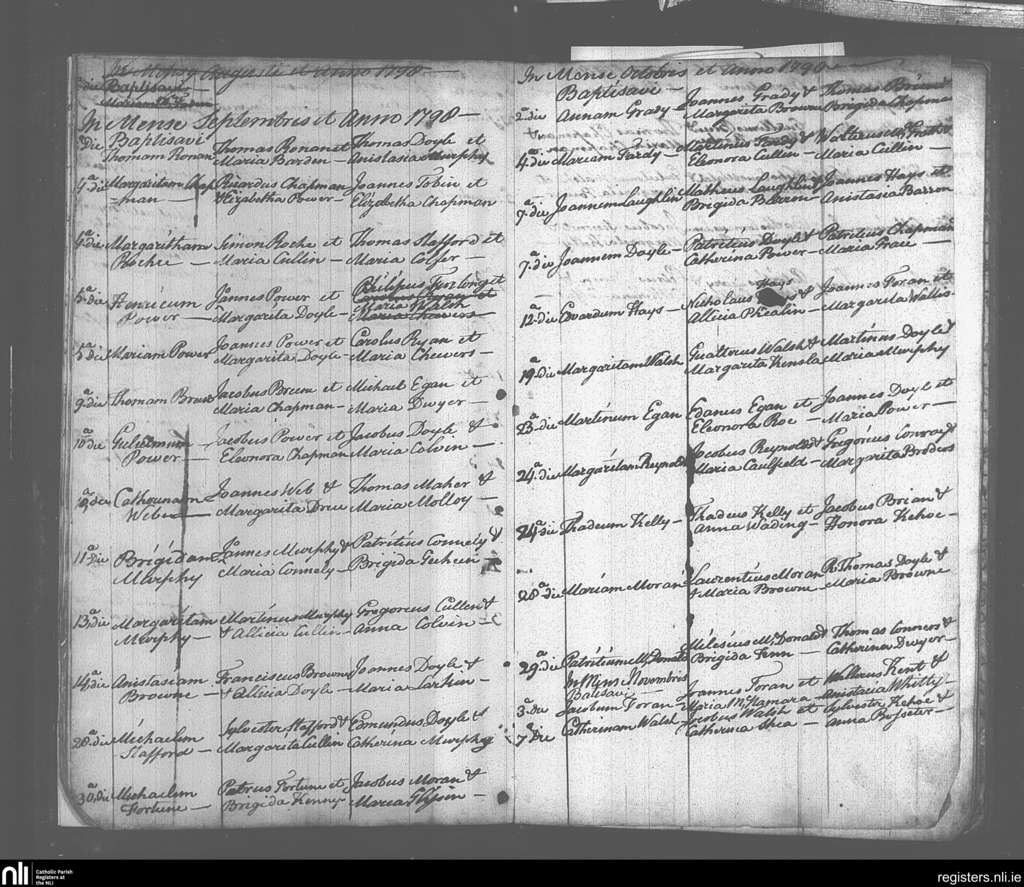 In Mense Augusti et Anno 1798 —
die Baptisavi —
In Mense Septembris et Anno 1798 —
die Baptisavi Thomas Ronan et Thomas Doyle et
Thomam Ronan Maria Barden — Anistasia Murphy
4.a die Margaritam Chap Ricardus Chapman Joannes Tobin et
man — Elizabetha Power — Elizabetha Chapman
4.a die Margaritham Simon Roche et Thomas Stafford et
Roche — Maria Cullin — Maria Cosfer —
5.a die Henricum Jannes Power et Philipus Furlong et
Power — Margarita Doyle —
5.a die Mariam Power Joannes Power et Carolus Ryan et
Margarita Doyle — Maria Cheevers —
9.a die Thomam Breen Jacobus Breen et Michael Egan et
Maria Chapman — Maria Dwyer —
10.a die Gulielmum Jacobus Power et Jacobus Doyle &
Power — Eleonora Chapman Maria Colvin —
die Catharinam Joannes Web & Thomas Maher &
Web Margarita Drew Maria Molloy —
11.a die Brigidam Jannes Murphy & Patritius Connely &
Murphy Maria Connely — Brigida
13.a die Margaritam Martinus Murphy Gregoreus Cullen &
Murphy — & Allicia Cullin — Anna Colvin —
14.a die Anistasiam Franciscus Browne Joannes Doyle &
Browne — & Allicia Doyle — Maria Larkin —
20.a die Michaelem Sylvester Stafford & Edmundus Doyle &
Stafford — Margarita Cullin Catherina Murphy
30.a die Michaelem Patrus Fortune et Jacobus Moran &
Fortune — Brigida Kenny Maria
In Mense Octobris et Anno 1798 —
Baptisavi — Joannes Grady & Thomas
2.a die Annam Grady Margarita Browne Brigida Chapman
4.a die Mariam Fardy — Martinus Fardy &
Eleonora Cullin — Maria Cullin —
7.a die Joannem Laughlin Matheus Laughlin & Joannes Hays et
Brigida Barron — Anistasia Barron
7.a die Joannem Doyle — Patritius Doyle & Patritius Chapman
Catherina Power — Maria
Hays
12.a die Edvardum Hays — Nicholaus & Joannes Foran et
Allicia Phealin — Margarita Wallis
19.a die Margaritam Walsh Gualterus Walsh & Martinus Doyle &
Margarita Kinsla Maria Murphy
23.a die Martinum Egan Edanus Egan et Joannes Doyle et
Eleonora Roe — Maria Power —
24.a die Margaritam Reynolds Jacobus Reynolds & Gregorius Conray &
Maria Caulfeld — Margarita Broders
24.a die Thadeum Kelly — Thadeus Kelly et Jacobus Brian &
Anna Wading — Honora Kehoe —
28.a die Mariam Moran Laurentius Moran R. Thomas Doyle &
& Maria Browne — Maria Browne
29.a die Patritium McDonald Milesius McDonald & Thomas Connors &
In Mense Novembris Brigida Fenn — Catherina Dwyer —
Batisavi —
3.a die Jacobum Foran — Joannes Foran et Walterus Kent &
Maria McNamara — Anistatia Whitty —
7.a die Catherinam Walsh Jacobus Walsh et Sylvestre Kehoe &
Catherina Shea — Anna Rossiter —
nli
Catholic Parish
Registers at
the NLI
registers.nli.ie